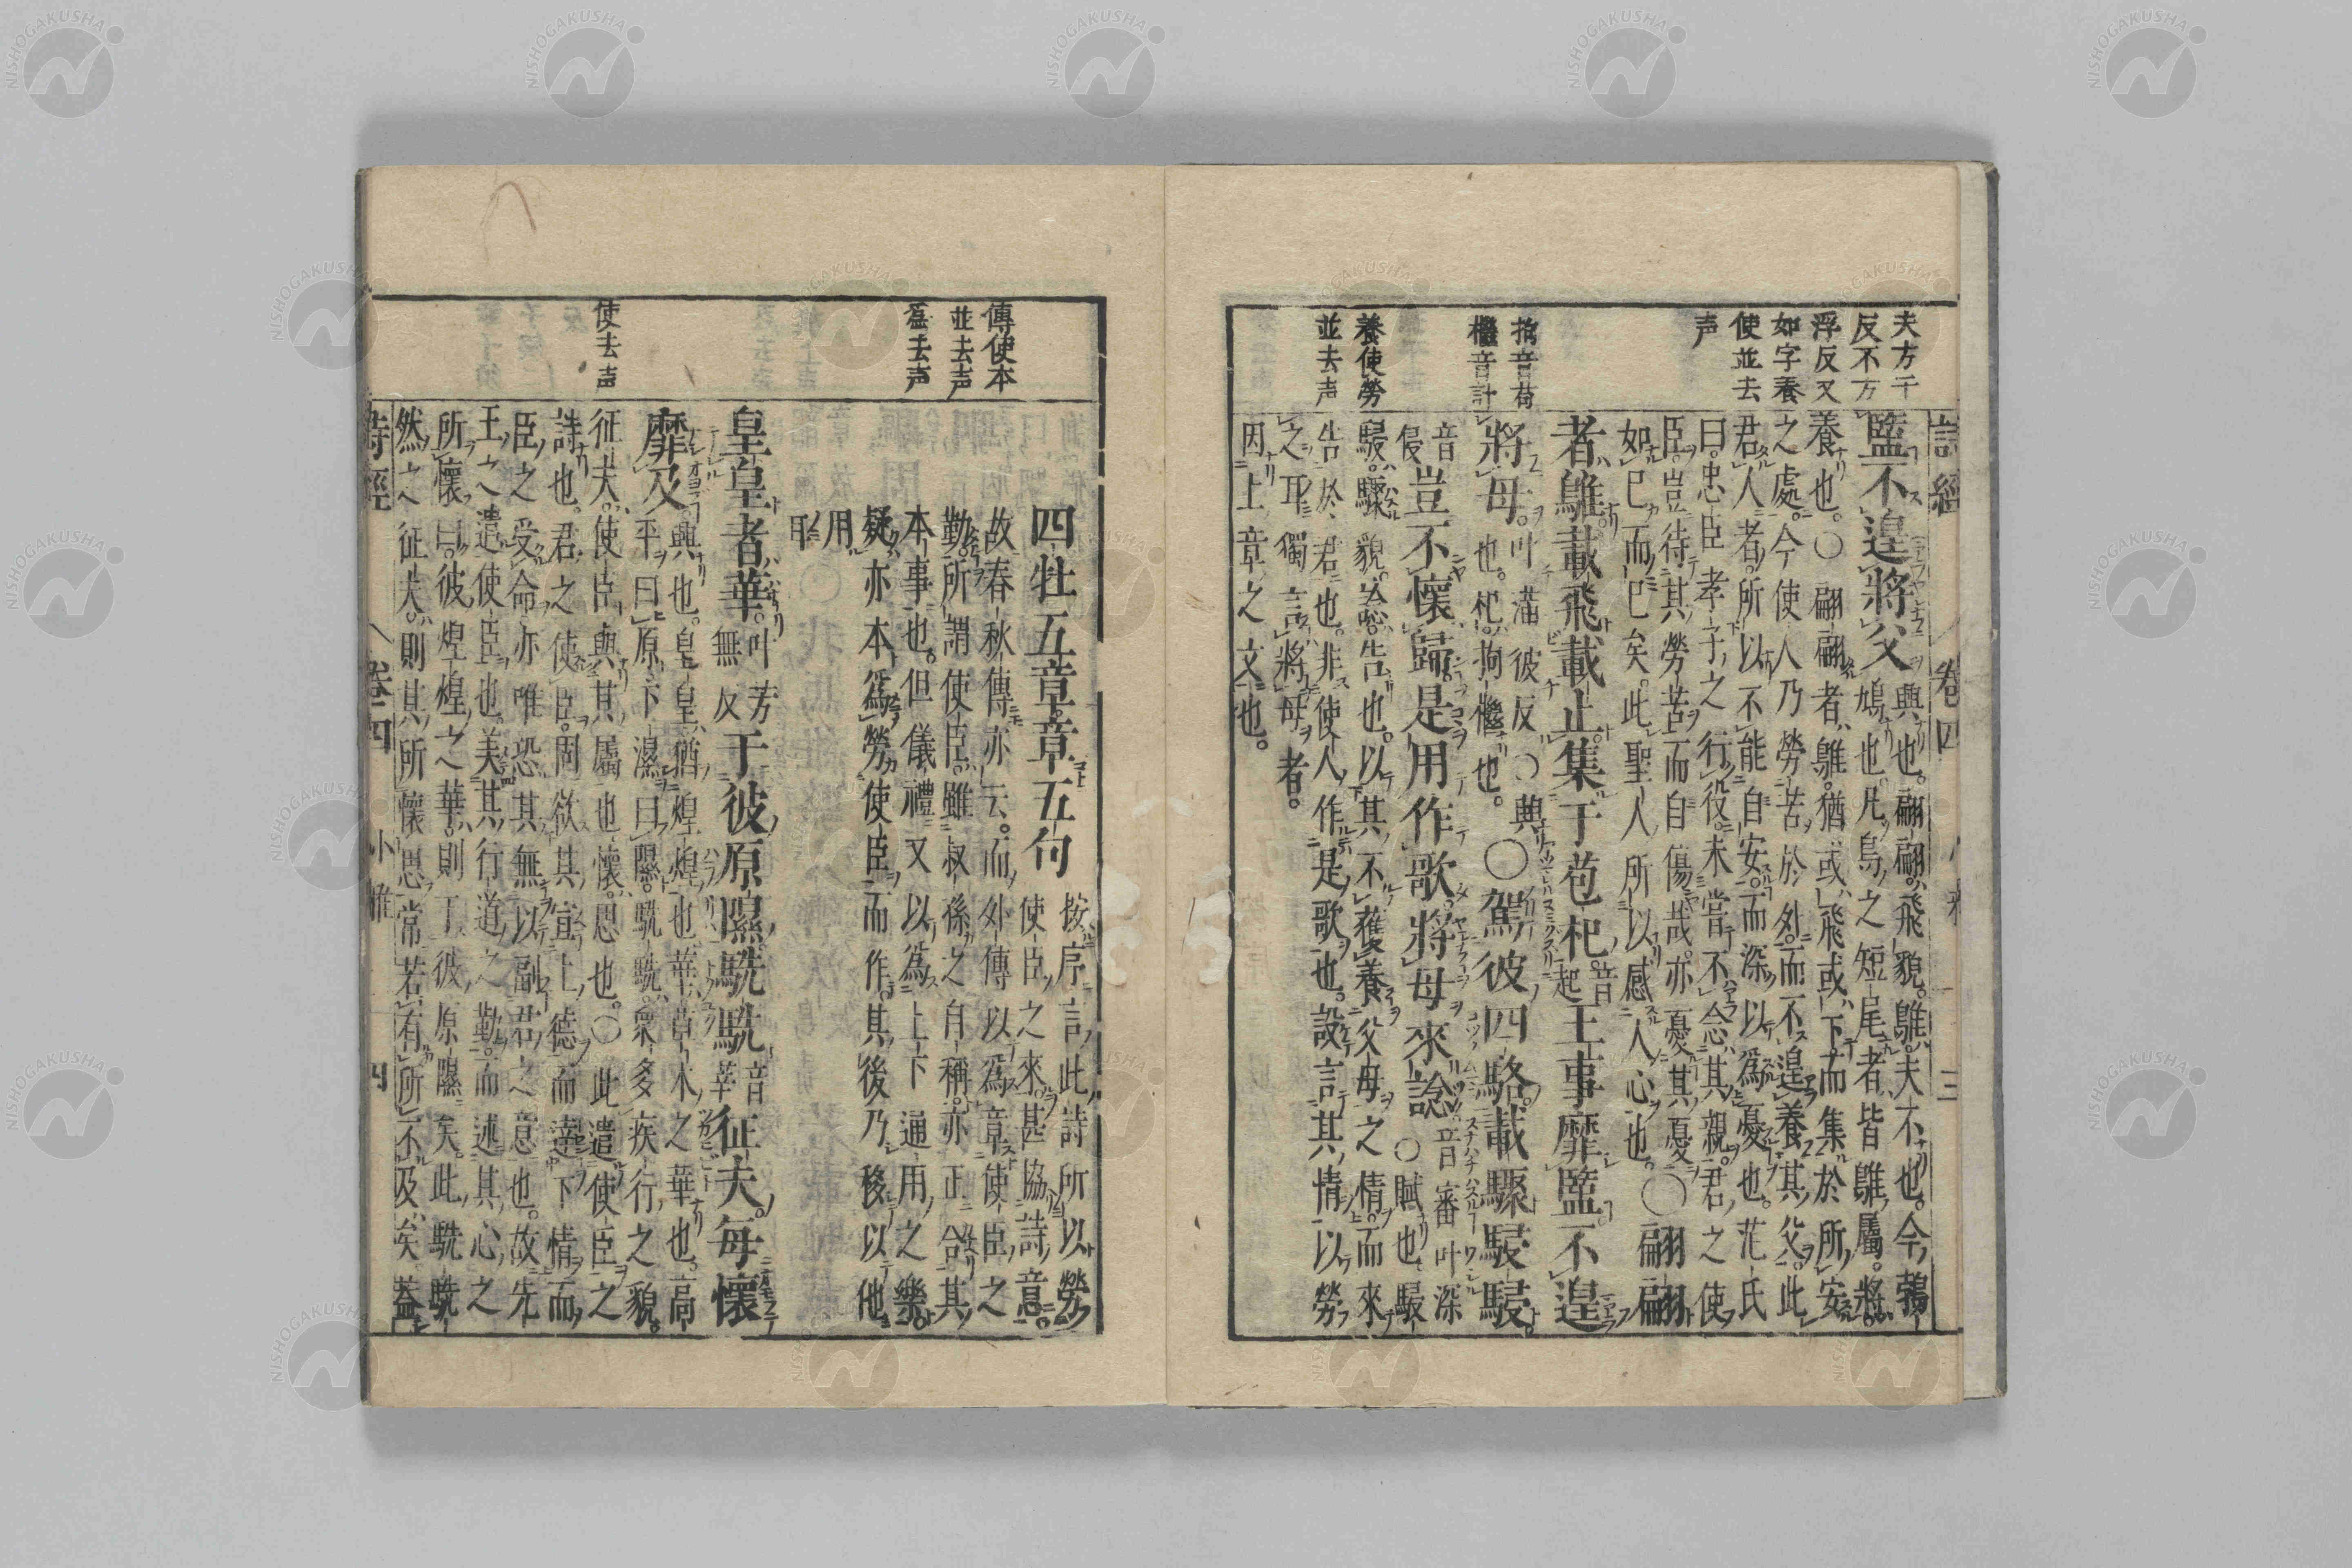 詩經　卷四　小雅　三
夫方于
反不方
浮反又
如字養
使並去
声
檵音計
養使勞
並去声
盬不遑將父興也。翩翩。飛貌。鵻。夫不也。今鵓
鳩也凡鳥之短尾者。皆鵻屬。將。
養也。〇翩翩者鵻。猶或飛或下。而集於所安
之處。今使人乃勞苦於外。而不遑養其父。此
君人者。所以不能自安。而深以為憂也。范氏
曰。忠臣孝子之行役。未嘗不念其親。君之使
臣。豈待其勞苦而自傷哉。亦憂其憂
如己而已矣。此聖人所以感人心也。〇翩翩
者鵻載飛載止集于苞杞音起王事靡盬不遑
將母叶滿彼反〇興也。杞。拘檵也。〇駕彼四駱載驟駸駸
音侵豈不懷歸是用作歌將母來諗音審叶深〇賦也駸
駸。驟貌。諗。告也。以其不獲養父母之情。而來
告於君也。非使人作是歌也。設言其情以勞
之耳獨言將母者。
因上章之文也。
傳使本
並去声
為去声
使去声
四牡五章章五句按序言此詩所以勞
使臣之來甚協詩意
故春秋傳亦云。而外傳以為章使臣之
勤。所謂使臣。雖叔孫之自稱。亦正合其
本事也。但儀禮又以為上下通用之樂
疑亦本為勞使臣而作。其後乃移以他
用
耶
皇皇者華叶芳無反于彼原隰駪駪音莘征夫每懷
靡及興也。皇皇猶煌煌也華草木之華也。高
平曰原下濕曰隰。駪駪。衆多疾行之貌。
征夫。使臣與其屬也懷思也。〇此遣使臣之
詩也。君之使臣。固欲其宣上德而達下情而
臣之受命。亦唯恐其無以副君之意也。故先
王之遣使臣也。美其行道之勤。而述其心之
所懷曰。彼煌煌之華。則于彼原隰矣。此駪駪
然之征夫。則其所懷思常若有所不及矣蓋
詩經　卷四　小雅　四
NISHOGAKUSHA